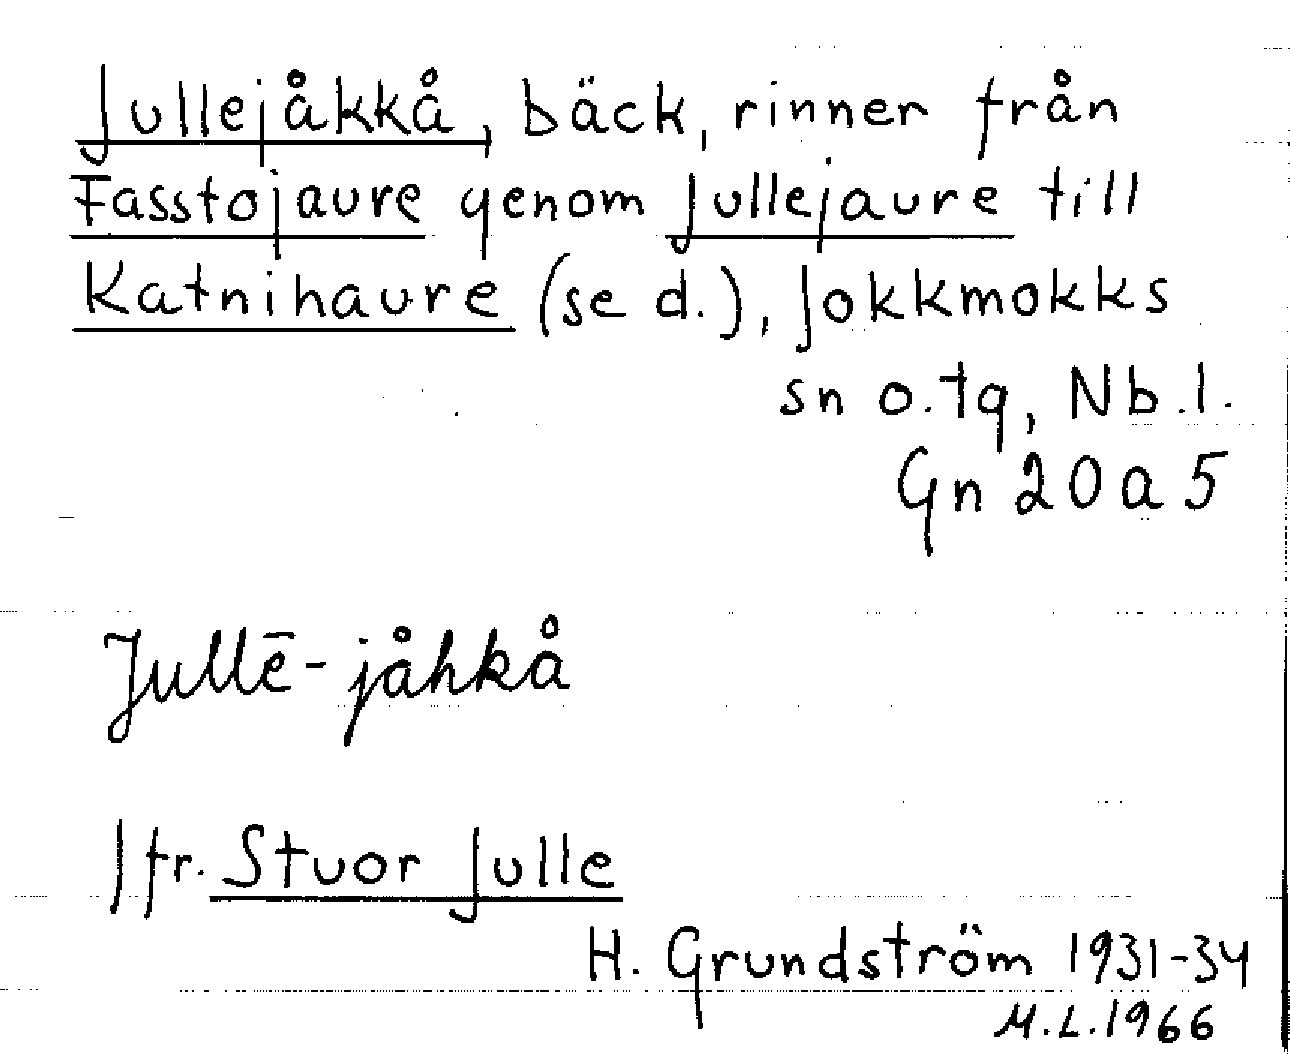 Jullejåkkå, bäck, rinner från
Fasstojaure genom Jullejaure till
Katnihaure (se d.), Jokkmokks
sn o. tg, Nb. l.
Gn 20 a 5
Jullē-jåhkå
Jfr. Stuor Julle
H. Grundström 1931-34
M.L. 1966